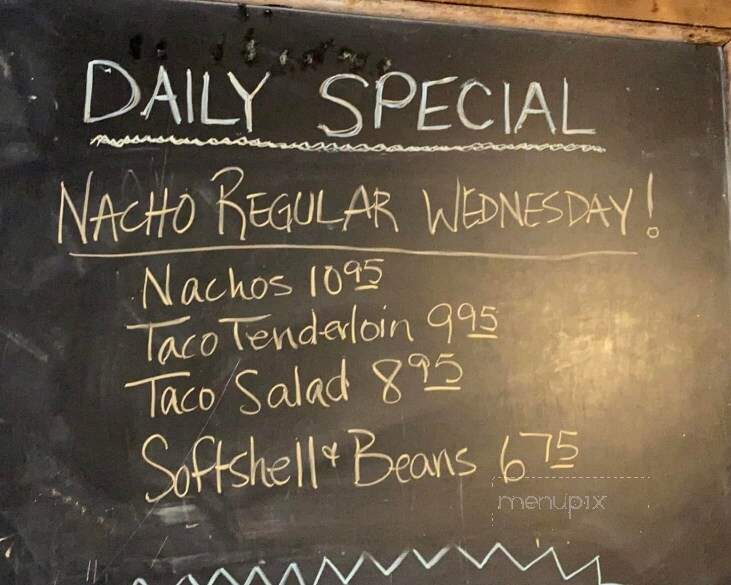 DAILY SPECIAL
NACHO REGULAR WEDNESDAY!
Nachos 10 95
Taco Tenderloin 9 95
Taco Salad 8 95
Softshell & Beans 6 75
menupix